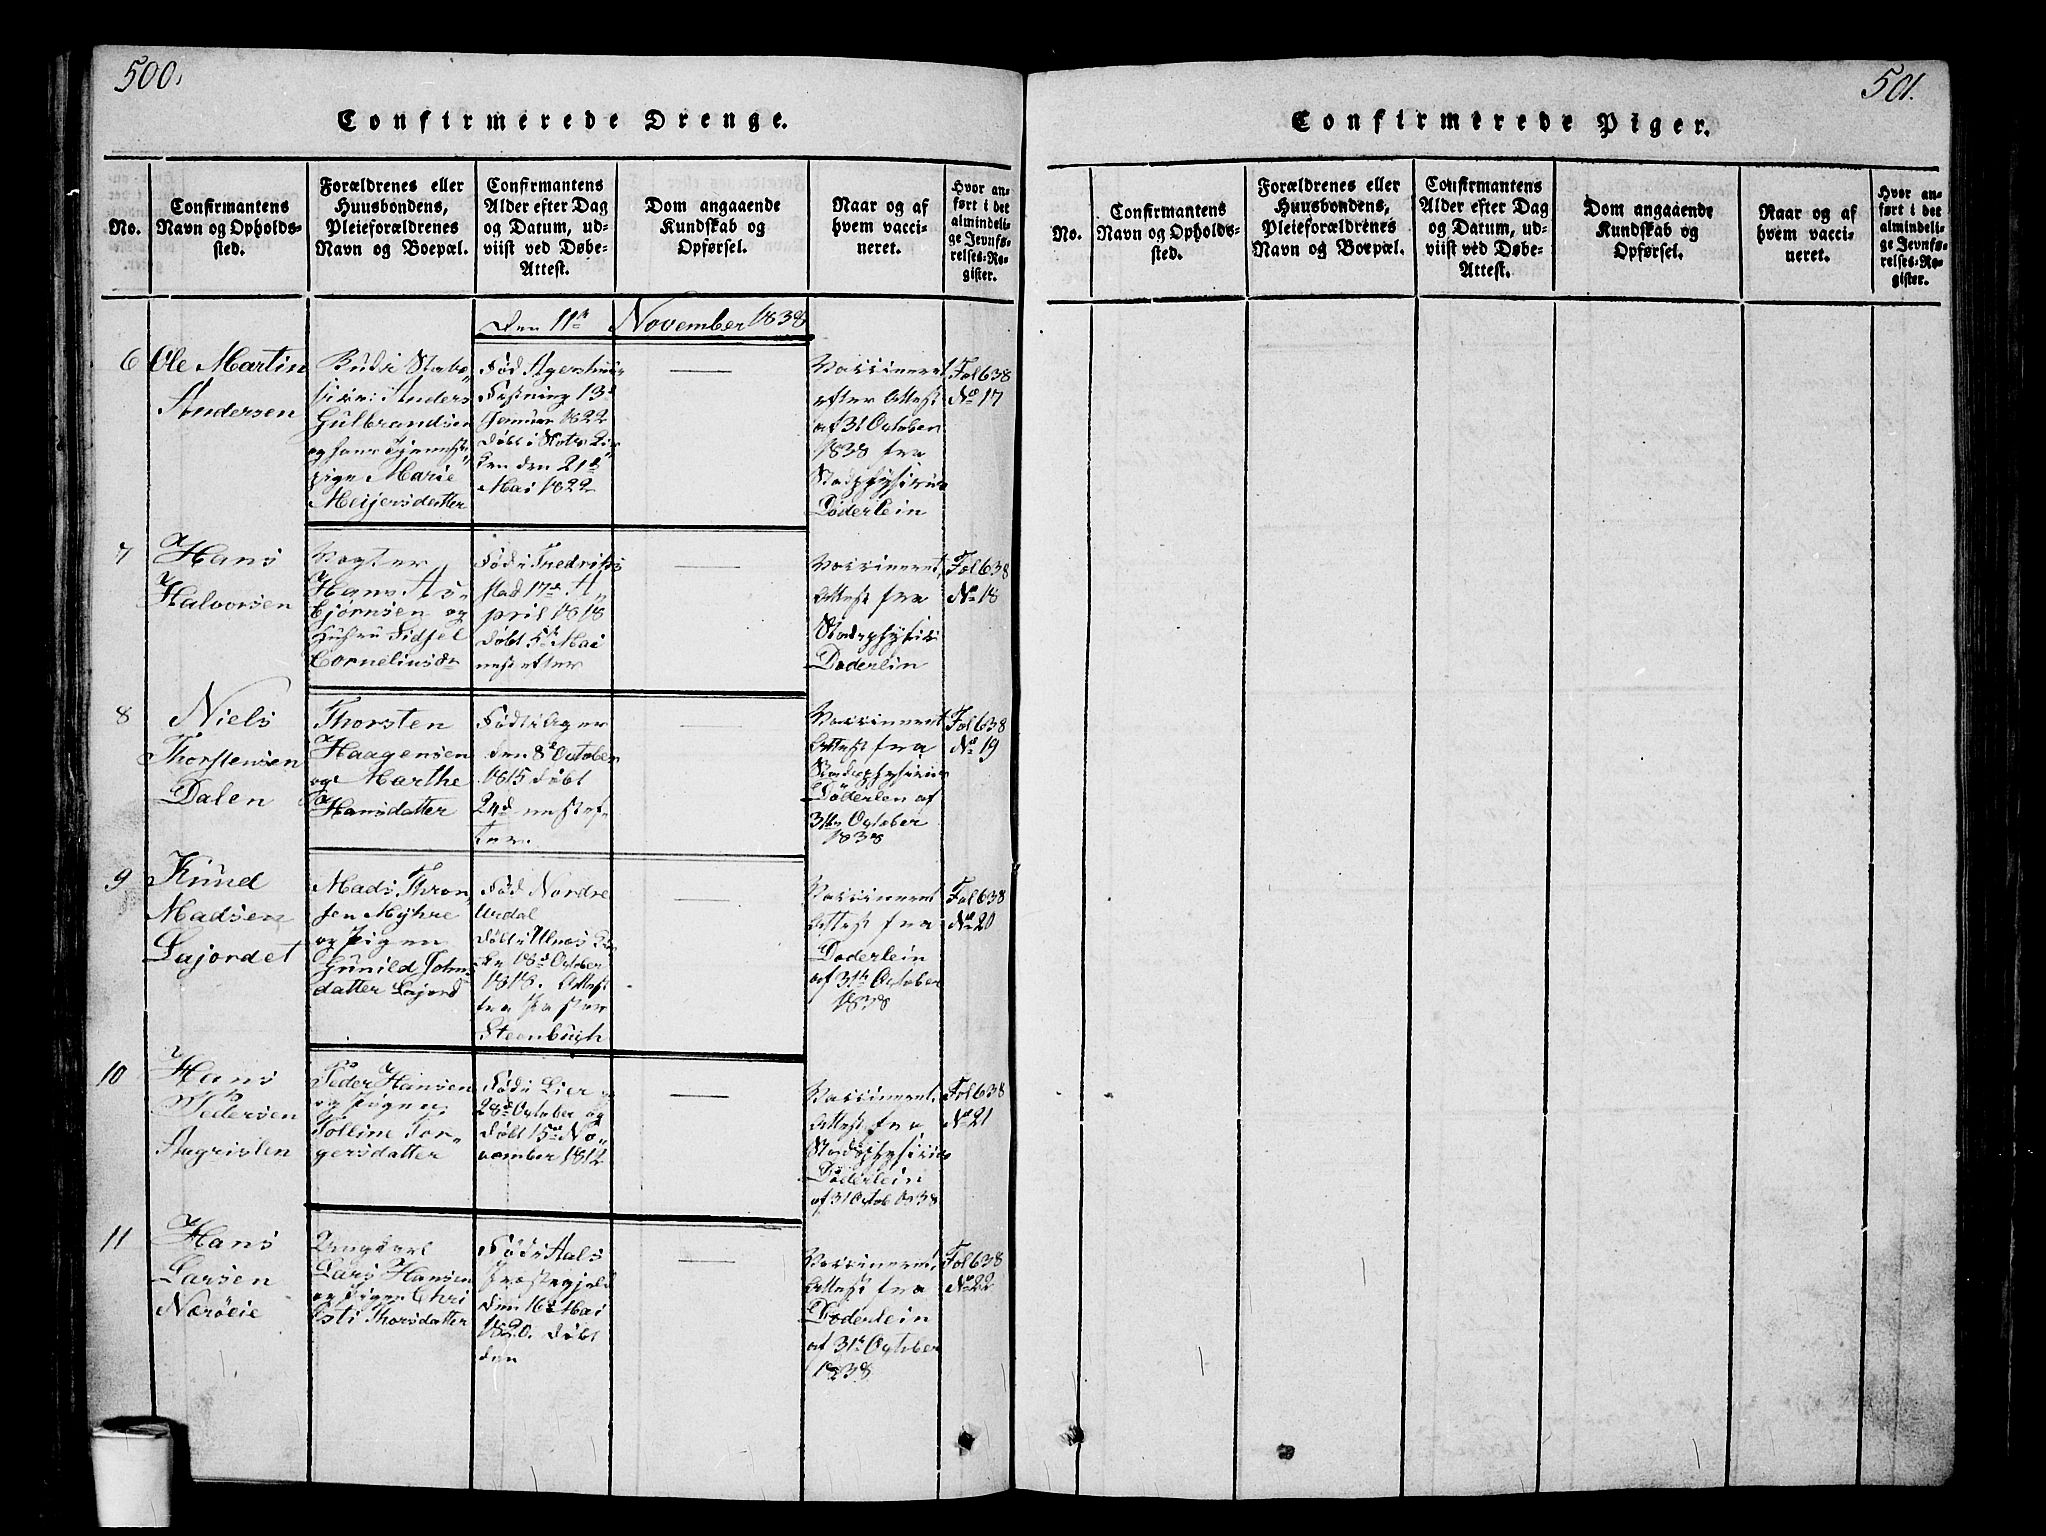 500.
Confirmerede Drenge.
No.
Confirmantens
Navn og Opholds-
sted.
Forældrenes eller
Huusbondens,
Pleieforældrenes
Navn og Boepæl.
Confirmantens
Alder efter Dag
og Datum, ud-
viist ved Døbe-
Attest.
Dom angaaende
Kundskab og
Opførsel.
Naar og af
hvem vacci-
neret.
Hvor an-
ført i det
almindeli-
ge Jevnfø-
relses-Re-
gister.
Den 11te November 1838
6
Ole Martin
Andersen
Anders
Gulbrandsen
og hans
pige Marie
Meijersdatter
Fød Agershuus
Festning 13de
Januar 1822
døbt i Slots Kir
ken den 21de
Mai 1822
Vaccineret
efter Attest
af 31 October
1838 fra
Stadphysicus
Døderlein
Fol 638
No 17
7
Hans
Halvorsen
Hans As-
bjørnsen og
Hustru Sidsel
Corneliusd
Fød i Fredriks
stad 17de A-
pril 1818
døbt 5te Mai
nestefter
Vaccineret
Attest fra
Stadsphysici
Døderlein
Fol 638
No 18
8
Niels
Thorstensen
Dalen
Thorsten
Haagensen
og Marthe
Hansdatter
Født i Ager
den 8de October
1815 døbt
24d nestef-
ter.
Vaccineret
Attest fra
Stadsphysicus
Døderlen af
31te October
1838
Fol 638
No 19
9
Knud
Madsen
Lajordet
Mads Thron
sen Myhre
og Pigen
Gunild John
datter Lajord
Fød Nordre
Urdal
døbt i Ulnæs Kir
ke 18de October
1818. Attest
fra Pastor
Steenbugh
Vaccineret
Attest fra
Døderlein
af 31te October
1838
Fol 638
No 20
10
Hans
Pedersen
Peder Hansen
og Pigen
Tolline Tor-
gersdatter
Fød i Lier
28de October og
døbt 15de No-
vember 1812
Vaccineret
Attest fra
Stadsphysicus
Døderlein
af 31 Octob 1838
Fol 638
No 21
11
Hans
Larsen
Nærøeie
Ungkarl
Lars Hansen
og Pigen Chri
sti Thorsdatter
Fød i Aals
Præstegjeld
den 16de Mai
1820. døbt
den
Vaccineret
Attest fra
Døderlein
af 31te October
1838
Fol 638
No 22
501.
Confirmerede Piger.
No.
Confirmantens
Navn og Opholds-
sted.
Forældrenes eller
Huusbondens,
Pleieforældrenes
Navn og Boepæl.
Confirmantens
Alder efter Dag
og Datum, ud-
viist ved Døbe-
Attest.
Dom angaaende
Kundskab og
Opførsel.
Naar og af
hvem vacci-
neret.
Hvor an-
ført i det
almindeli-
ge Jevnfø-
relses-Re-
gister.